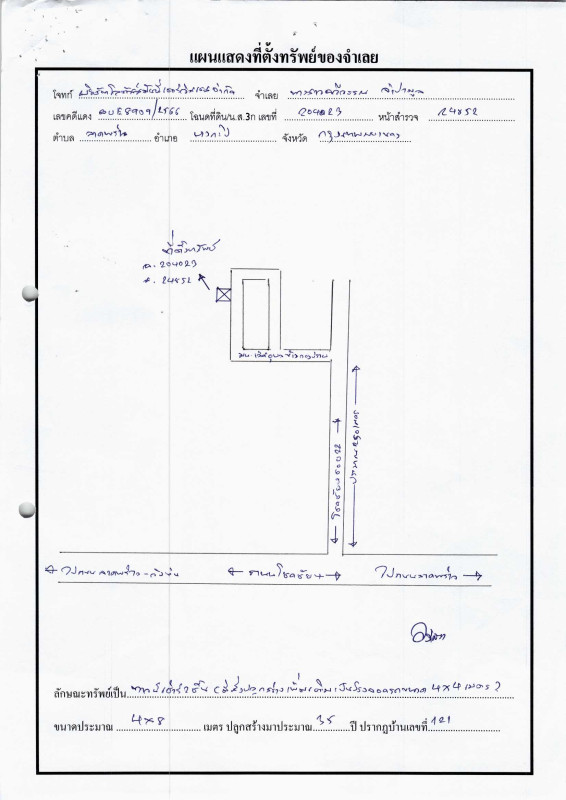 แผนแสดงที่ตั้งทรัพย์ของจำเลย
โจทก์ จำเลย นางสาวศรีวรรณ
เลขคดีแดง ผบE8909/2566 โฉนดที่ดิน/น.ส.3ก เลขที่ 204023 หน้าสำรวจ 24852
ตำบล ลาดพร้าว อำเภอ บางกะปิ จังหวัด กรุงเทพมหานคร
ที่ตั้งทรัพย์
ฉ. 204023
24852
โชคชัย 4 ซอย 22
ประมาณ 250 เมตร
ไปถนนลาดพร้าว-วังหิน
ถนนโชคชัย 4
ไปถนนลาดพร้าว
ลักษณะทรัพย์เป็น ทาวน์เฮ้าส์ 2 ชั้น (มีสิ่งปลูกสร้างเพิ่มเติมเป็นโรงจอดรถขนาด 4x4 เมตร)
ขนาดประมาณ 4x8 เมตร ปลูกสร้างมาประมาณ 35 ปี ปรากฏบ้านเลขที่ 121